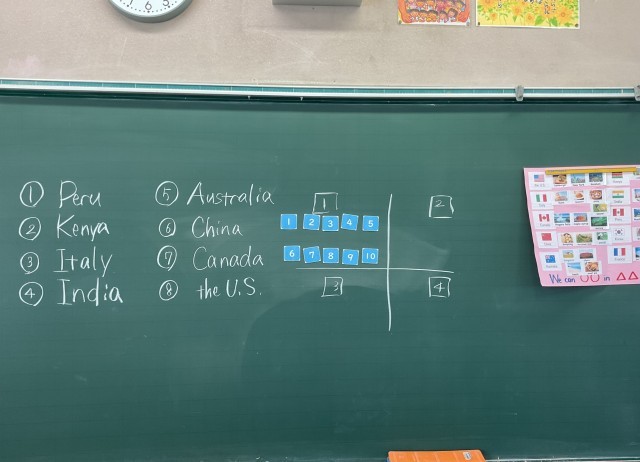 ① Peru
② Kenya
③ Italy
④ India
⑤ Australia
⑥ China
⑦ Canada
⑧ the U.S.
1
2
1 2 3 4 5
6 7 8 9 10
3
4
We can ○○ in △△